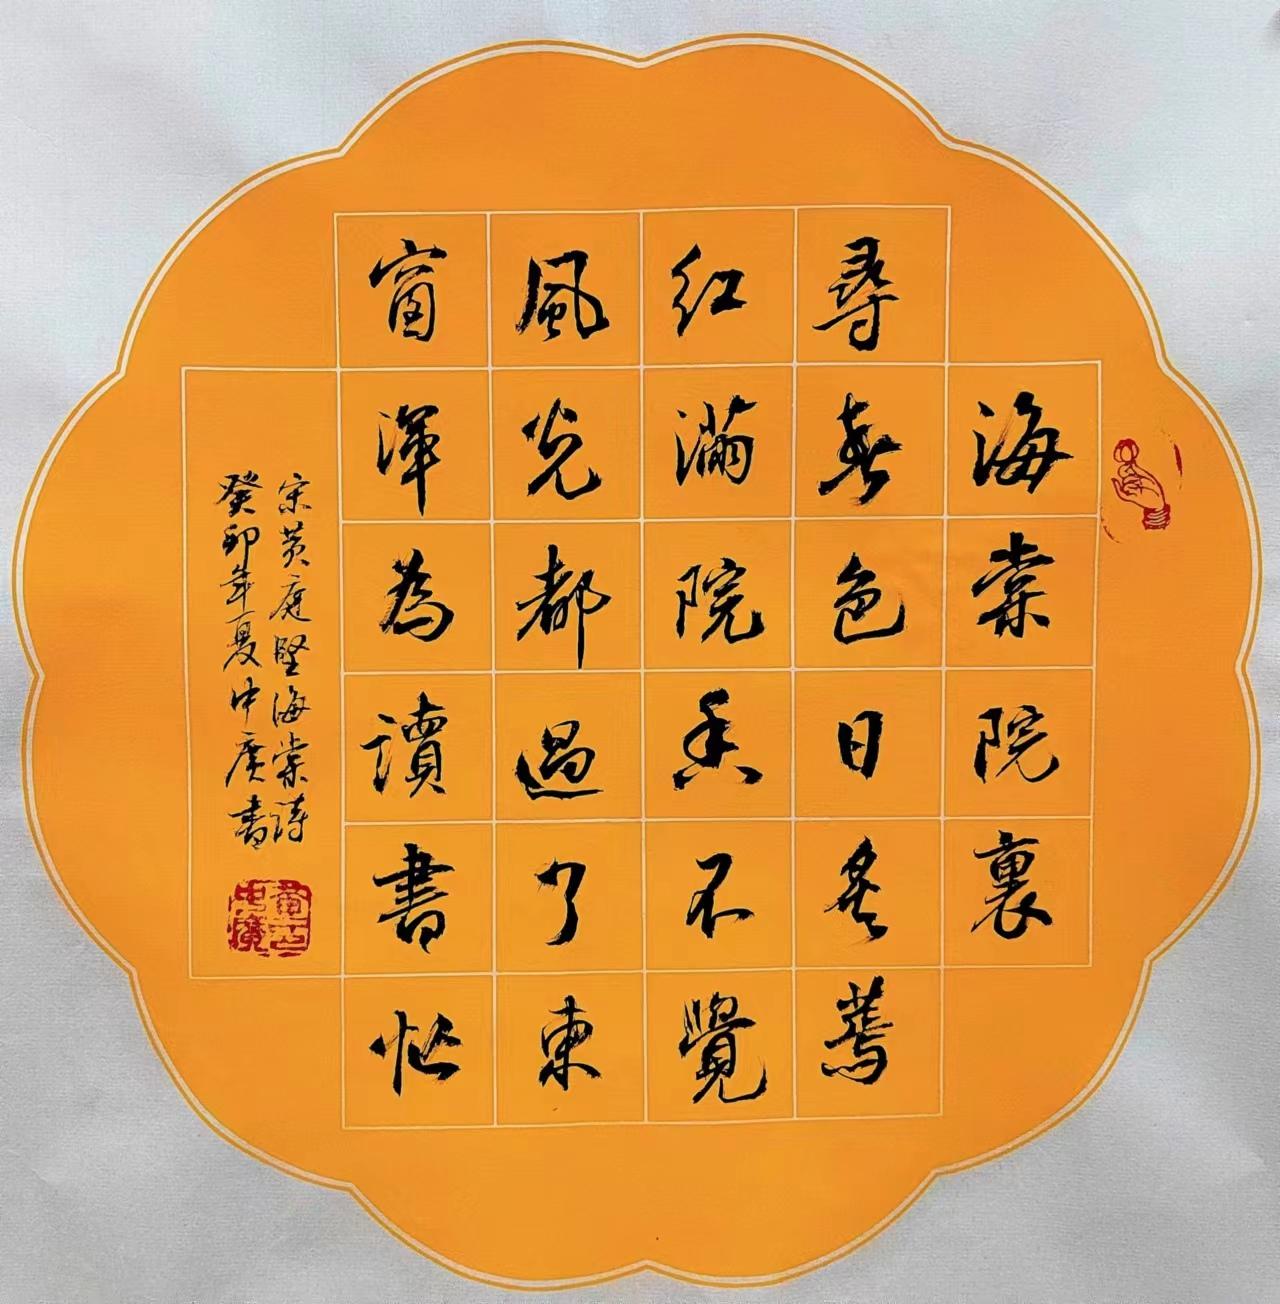 海棠院裏
尋春色日炙蔫
紅滿院香不覺
風光都過了東
窗渾為讀書忙
宋黄庭堅海棠詩
癸卯年夏中廣書